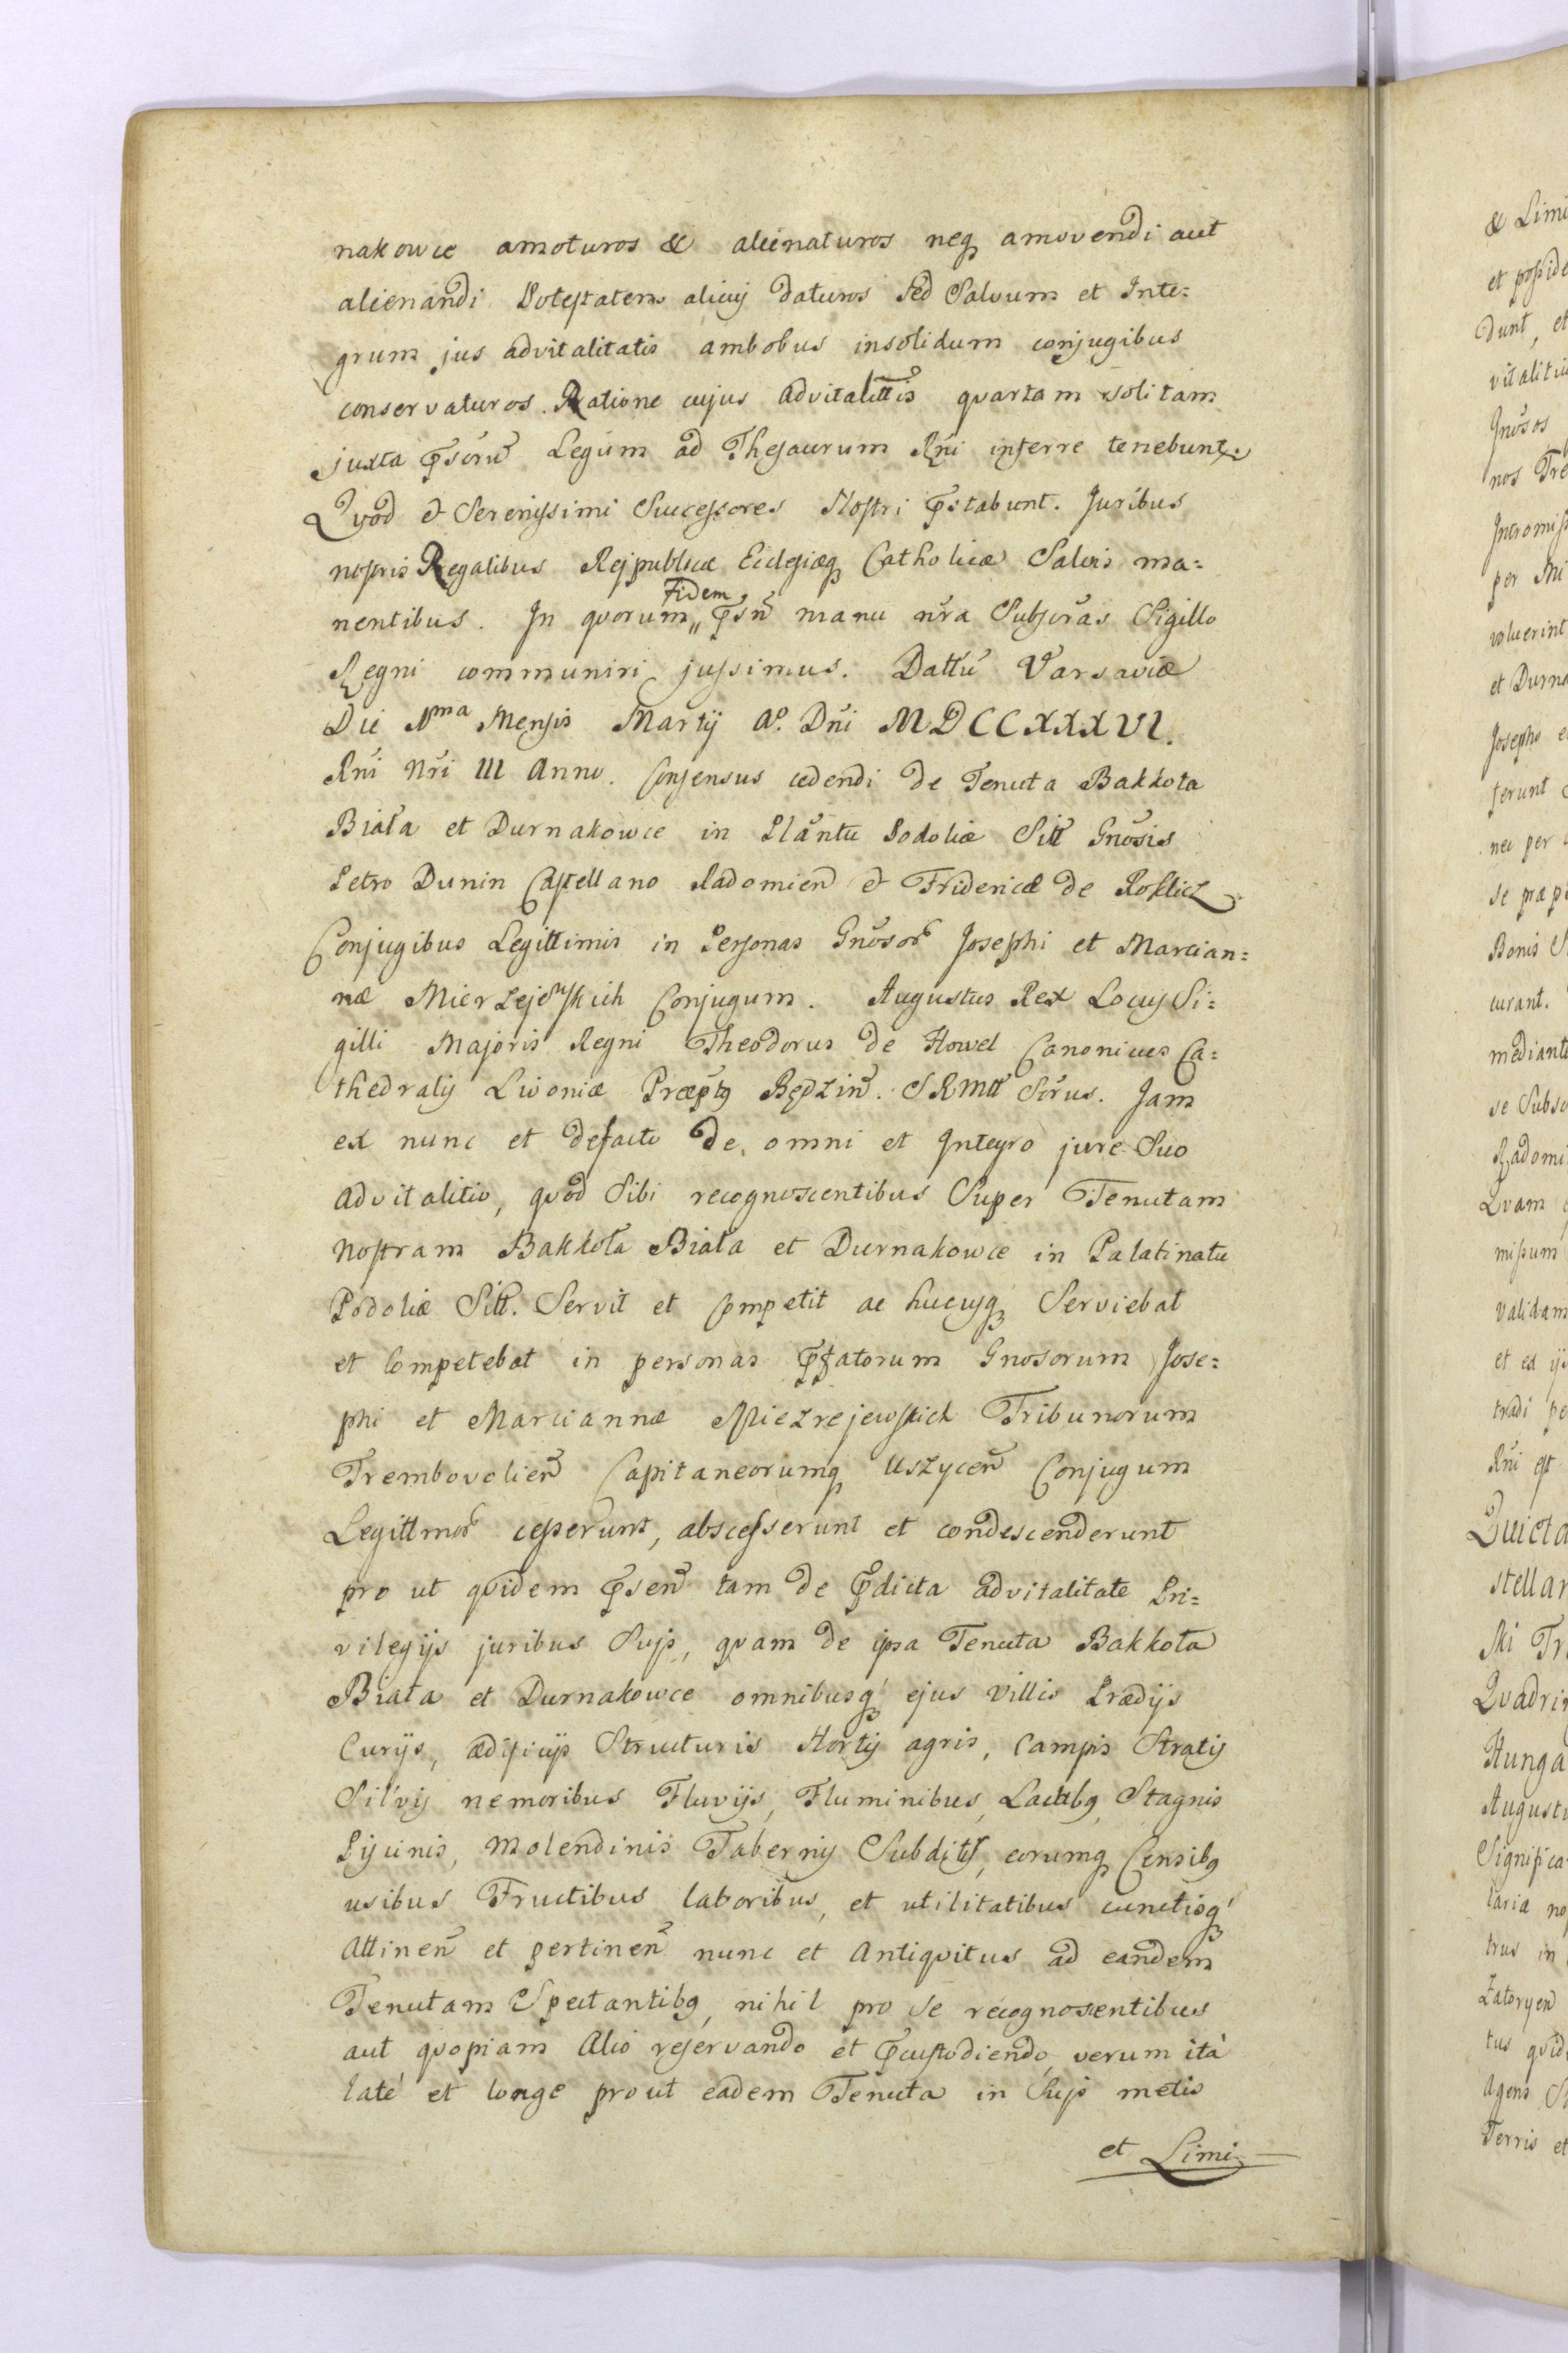 nakowce amoturos & alienaturos neq₃ amovendi aut
alienandi Potestatem alicuj daturos sed Salvum et Inte=
grum jus advitalitatis ambobus insolidum conjugibus
conservaturos. Ratione cujus advitalittis quartam solitam
juxta p̃scrũ Legum ad Thesaurum Rñi inferre tenebunt.
Qvod & Serenissimi Successores Nostri p̃stabunt. Juribus
nostris Regalibus Rejpublicæ Ecclesiæq₃ Catholicæ Salvis ma=
nentibus. In quorum Fidem p̃sñ manu nr̃a Subscr̃as Sigillo
Regni communiri jussimus. Dattũ Varsaviæ
Die Martij Aº. Dñi MDCCXXXVI.
Rñi Nr̃i III Anno. Consensus cedendi de Tenuta Bakkota
Biała et Durnakowce in Plãntu Podoliæ Sitt Gnõsis
Petro Dunin Castellano Radomieñ & Fridericæ de Rostlicz
Conjugibus Legittimis in Personas Gnõsor̃ Josephi et Marcian=
næ Mierzejewskich Conjugum. Augustus Rex Locus Si=
gilli Majoris Regni Theodorus de Howel Canonicus Ca=
thedralis Livoniæ Præp̃tg Będziñ. SRMtt Scr̃us. Jam
ex nunc et defacto de omni et Integro jure Suo
advitalitio, quod Sibi recognoscentibus Super Tenutam
nostram Bakkota Biała et Durnakowce in Palatinatu
Podoliæ Sitt. Servit et Competit ac hucusq₃ Serviebat
et Competebat in personas p̃fatorum Gnosorum Jose=
phi et Marciannæ Miezrejewskich Tribunorum
Trembovolieñ Capitaneorumq₃ Uszyceñ Conjugum
Legittmor̃ cesserunt, abscesserunt et condescenderunt
pro ut qvidem p̃señ tam de p̃dicta advitalitate Pri=
vilegijs juribus Sujs, qvam de ipsa Tenuta Bakkota
Biała et Durnakowce omnibusq₃ ejus Villis Prædijs
Curijs, ædificijs Structuris Hortis agris, Campis Stratis
Silvis nemoribus Fluvijs, Fluminibus, Lacubg Stagnis
Piscinis, Molendinis Tabernis Subditis, eorumq₃ Censibg
usibus Fructibus laboribus, et utilitatibus cunctisq₃
Attineñ et pertineñ nunc et Antiqvitus ad eandem
Tenutam Spectantibg, nihil pro se recognoscentibus
aut qvopiam Alio reservando et p̃custodiendo, verum ità
latè et longe prout eadem Tenuta in Sujs metis
et Limi